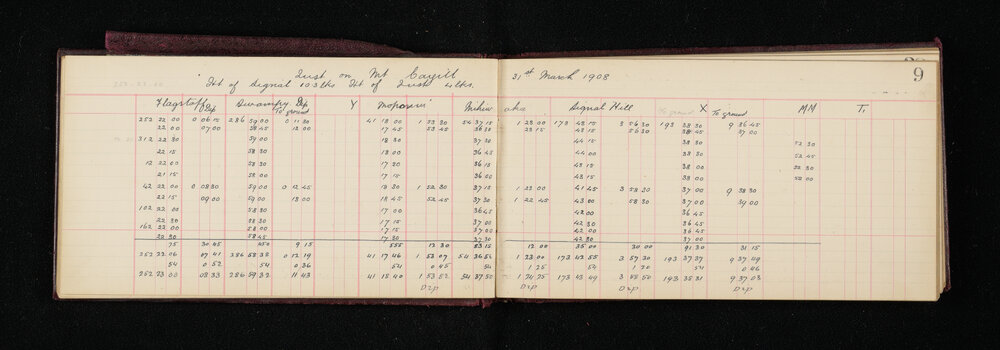 9
Inst on Mt Cargill 31st March 1908
Ht of Signal 103 lks Ht of Inst 4 lks.
Flagstaff Dep Swampy Dep To ground Y Mopanui Mihiw aka Signal Hill X To ground MM T1
252 22 00 0 06 15 286 59 00 0 11 30 41 18 00 1 53 30 54 37 15 1 23 00 173 43 15 3 56 30 193 38 30 9 36 45
22 00 07 00 58 45 12 00 17 45 53 45 36 30 23 15 43 15 56 30 38 45 37 00
312 22 30 59 00 18 30 37 30 44 15 38 30 52 30
22 15 58 30 18 00 36 45 44 00 38 30 52 45
12 22 00 58 30 17 30 36 15 43 15 38 00 52 30
21 15 58 00 17 15 36 00 43 15 38 00 52 00
42 22 00 0 08 30 59 00 0 12 45 18 30 1 52 30 37 15 1 22 00 41 45 3 58 30 37 00 9 38 30
22 15 09 00 59 00 13 00 18 45 52 45 37 30 1 22 45 43 00 58 30 37 00 39 00
102 22 00 58 30 17 00 36 45 42 00 36 45
22 30 58 30 17 15 37 15 42 30 36 45
162 22 00 58 00 17 15 37 00 42 00 36 45
22 30 58 45 17 30 37 30 42 30 37 00
75 30 45 450 9 15 555 12 30 83 15 12 00 35 00 30 00 91 30 31 15
252 22 06 07 41 286 58 38 0 12 19 41 17 46 1 53 07 54 36 56 1 23 00 173 42 55 3 57 30 193 37 37 9 37 49
54 0 52 54 0 36 54 0 45 54 1 25 54 1 20 54 0 46
252 23 00 08 33 286 59 32 11 43 41 18 40 1 53 52 54 37 50 1 24 25 173 43 49 3 58 50 193 38 31 9 37 03
Dep Dep Dep Dep